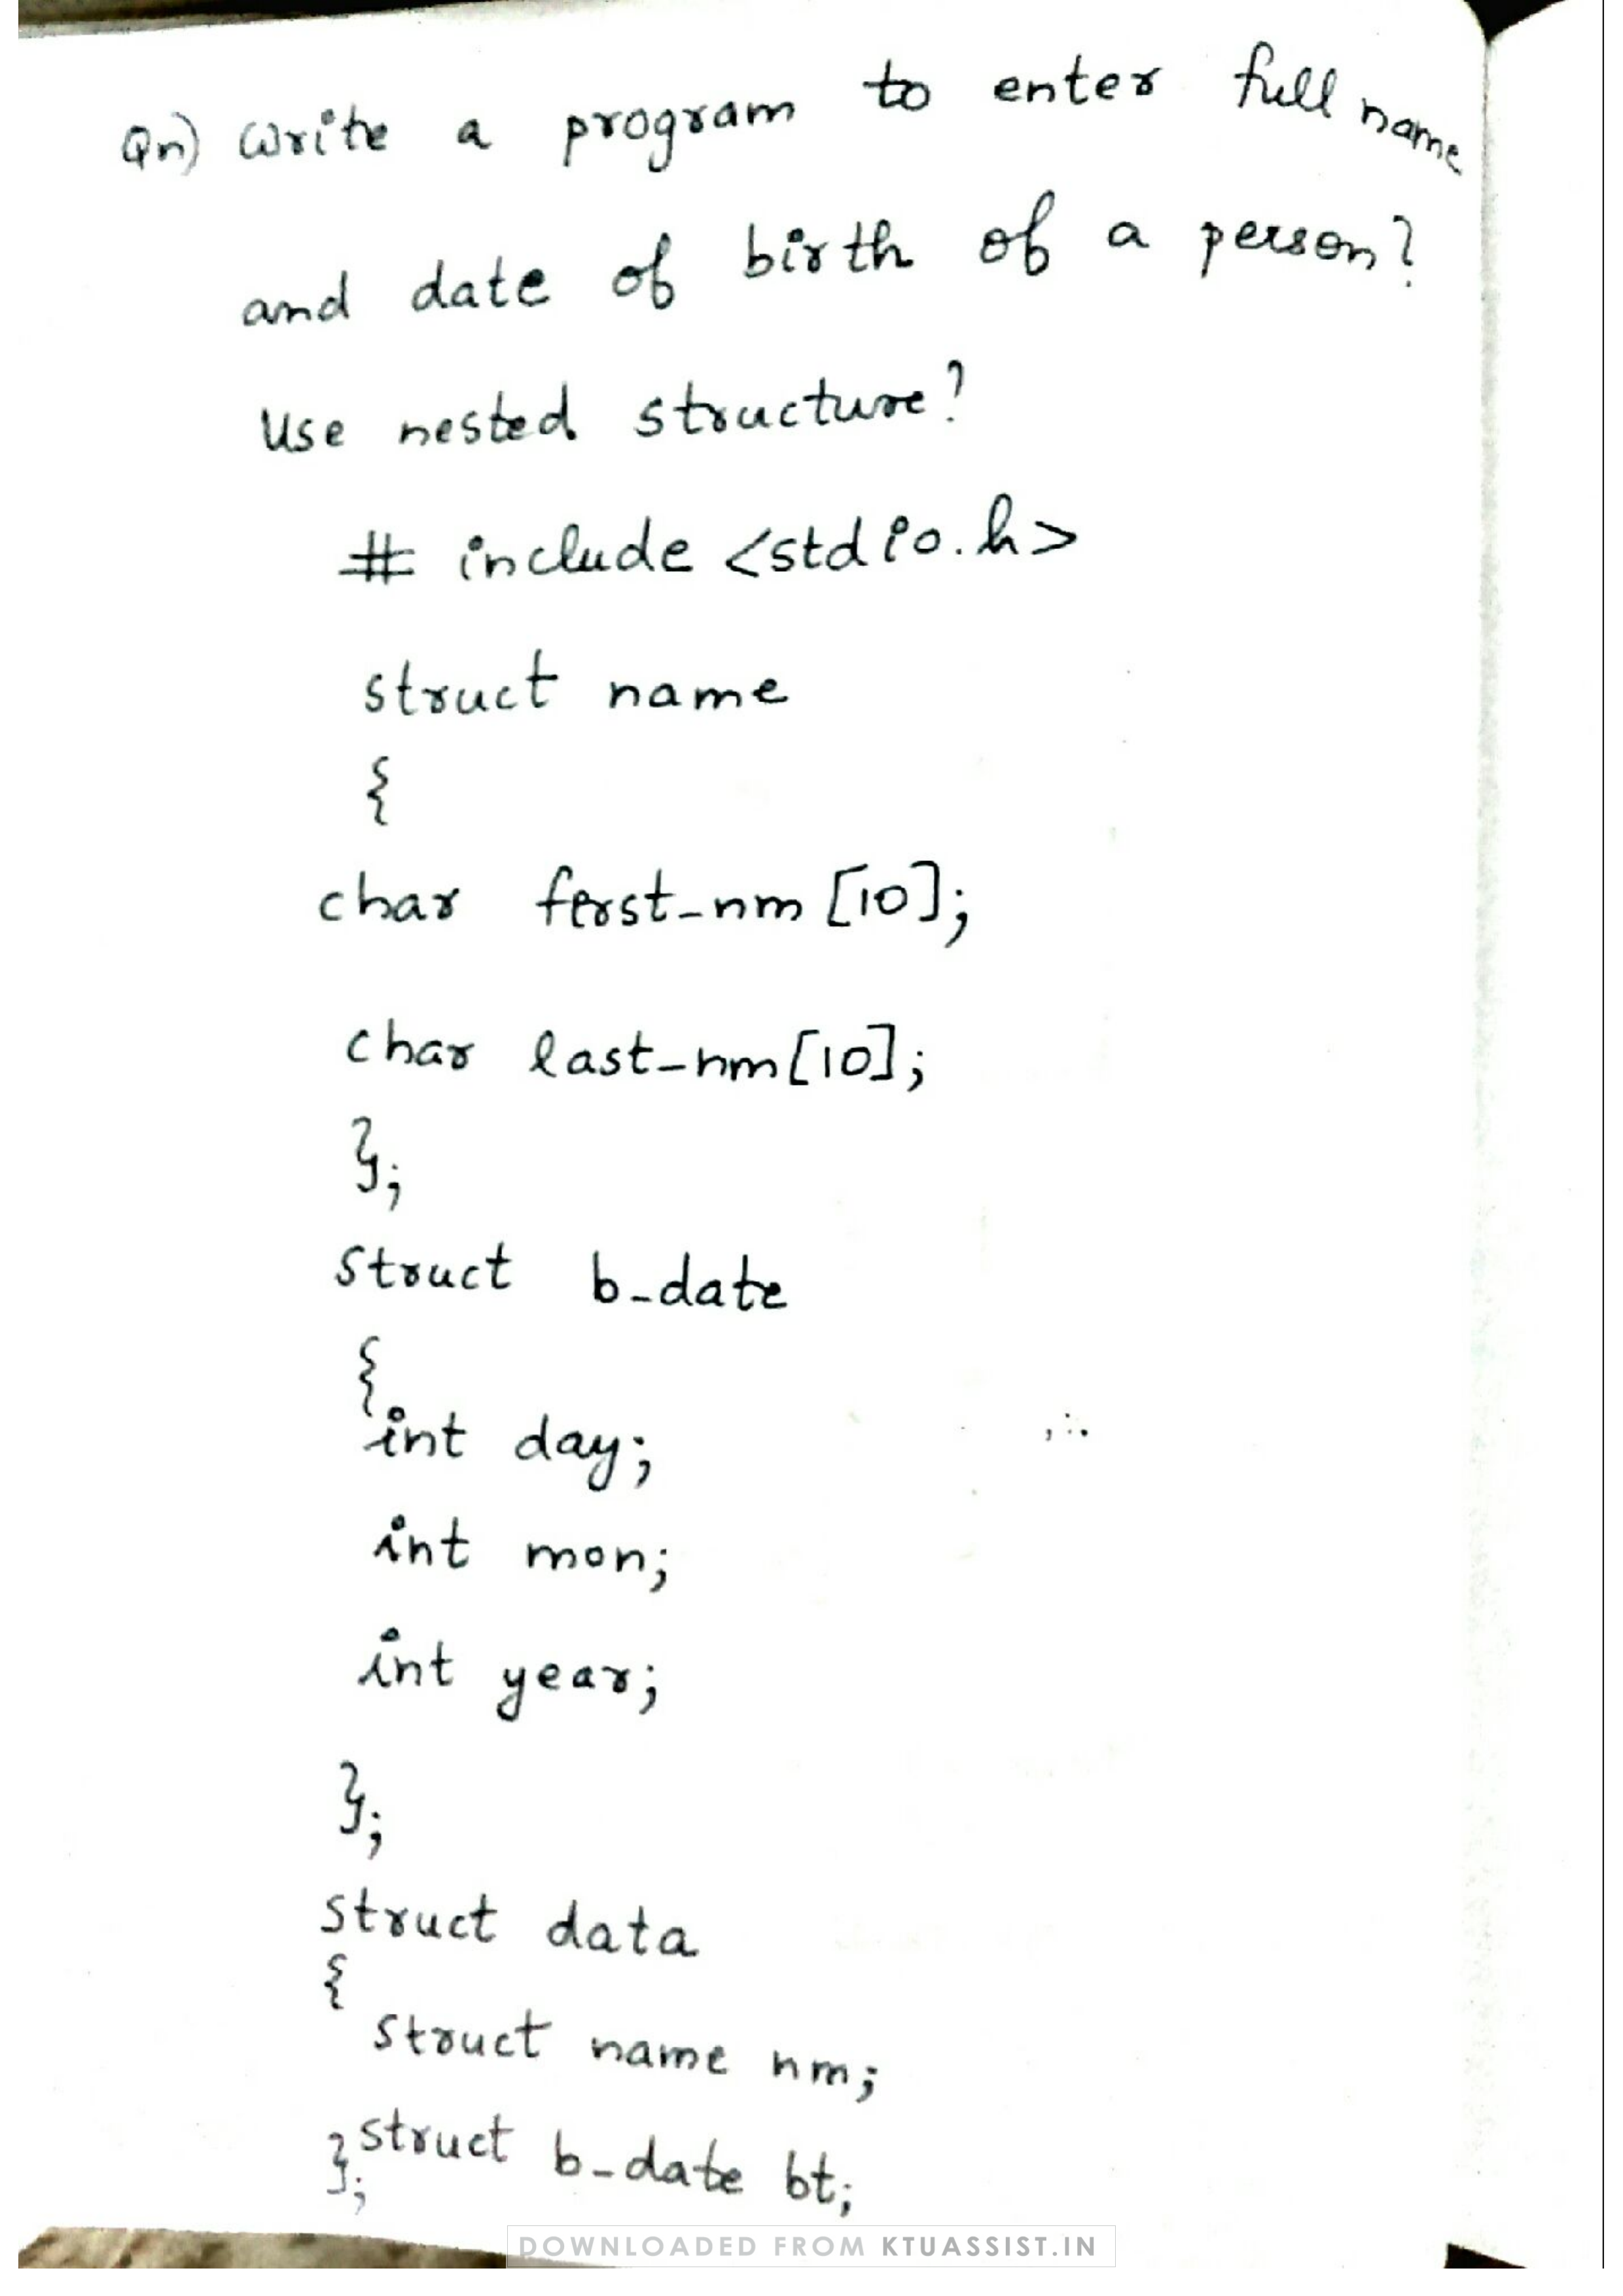 Qn) Write a program to enter full name
and date of birth of a person?
Use nested structure?
# include <stdio.h>
struct name
{
char first_nm [10];
char last_nm[10];
};
struct b_date
{
int day;
int mon;
int year;
};
struct data
{
struct name nm;
struct b_date bt;
};
DOWNLOADED FROM KTUASSIST.IN